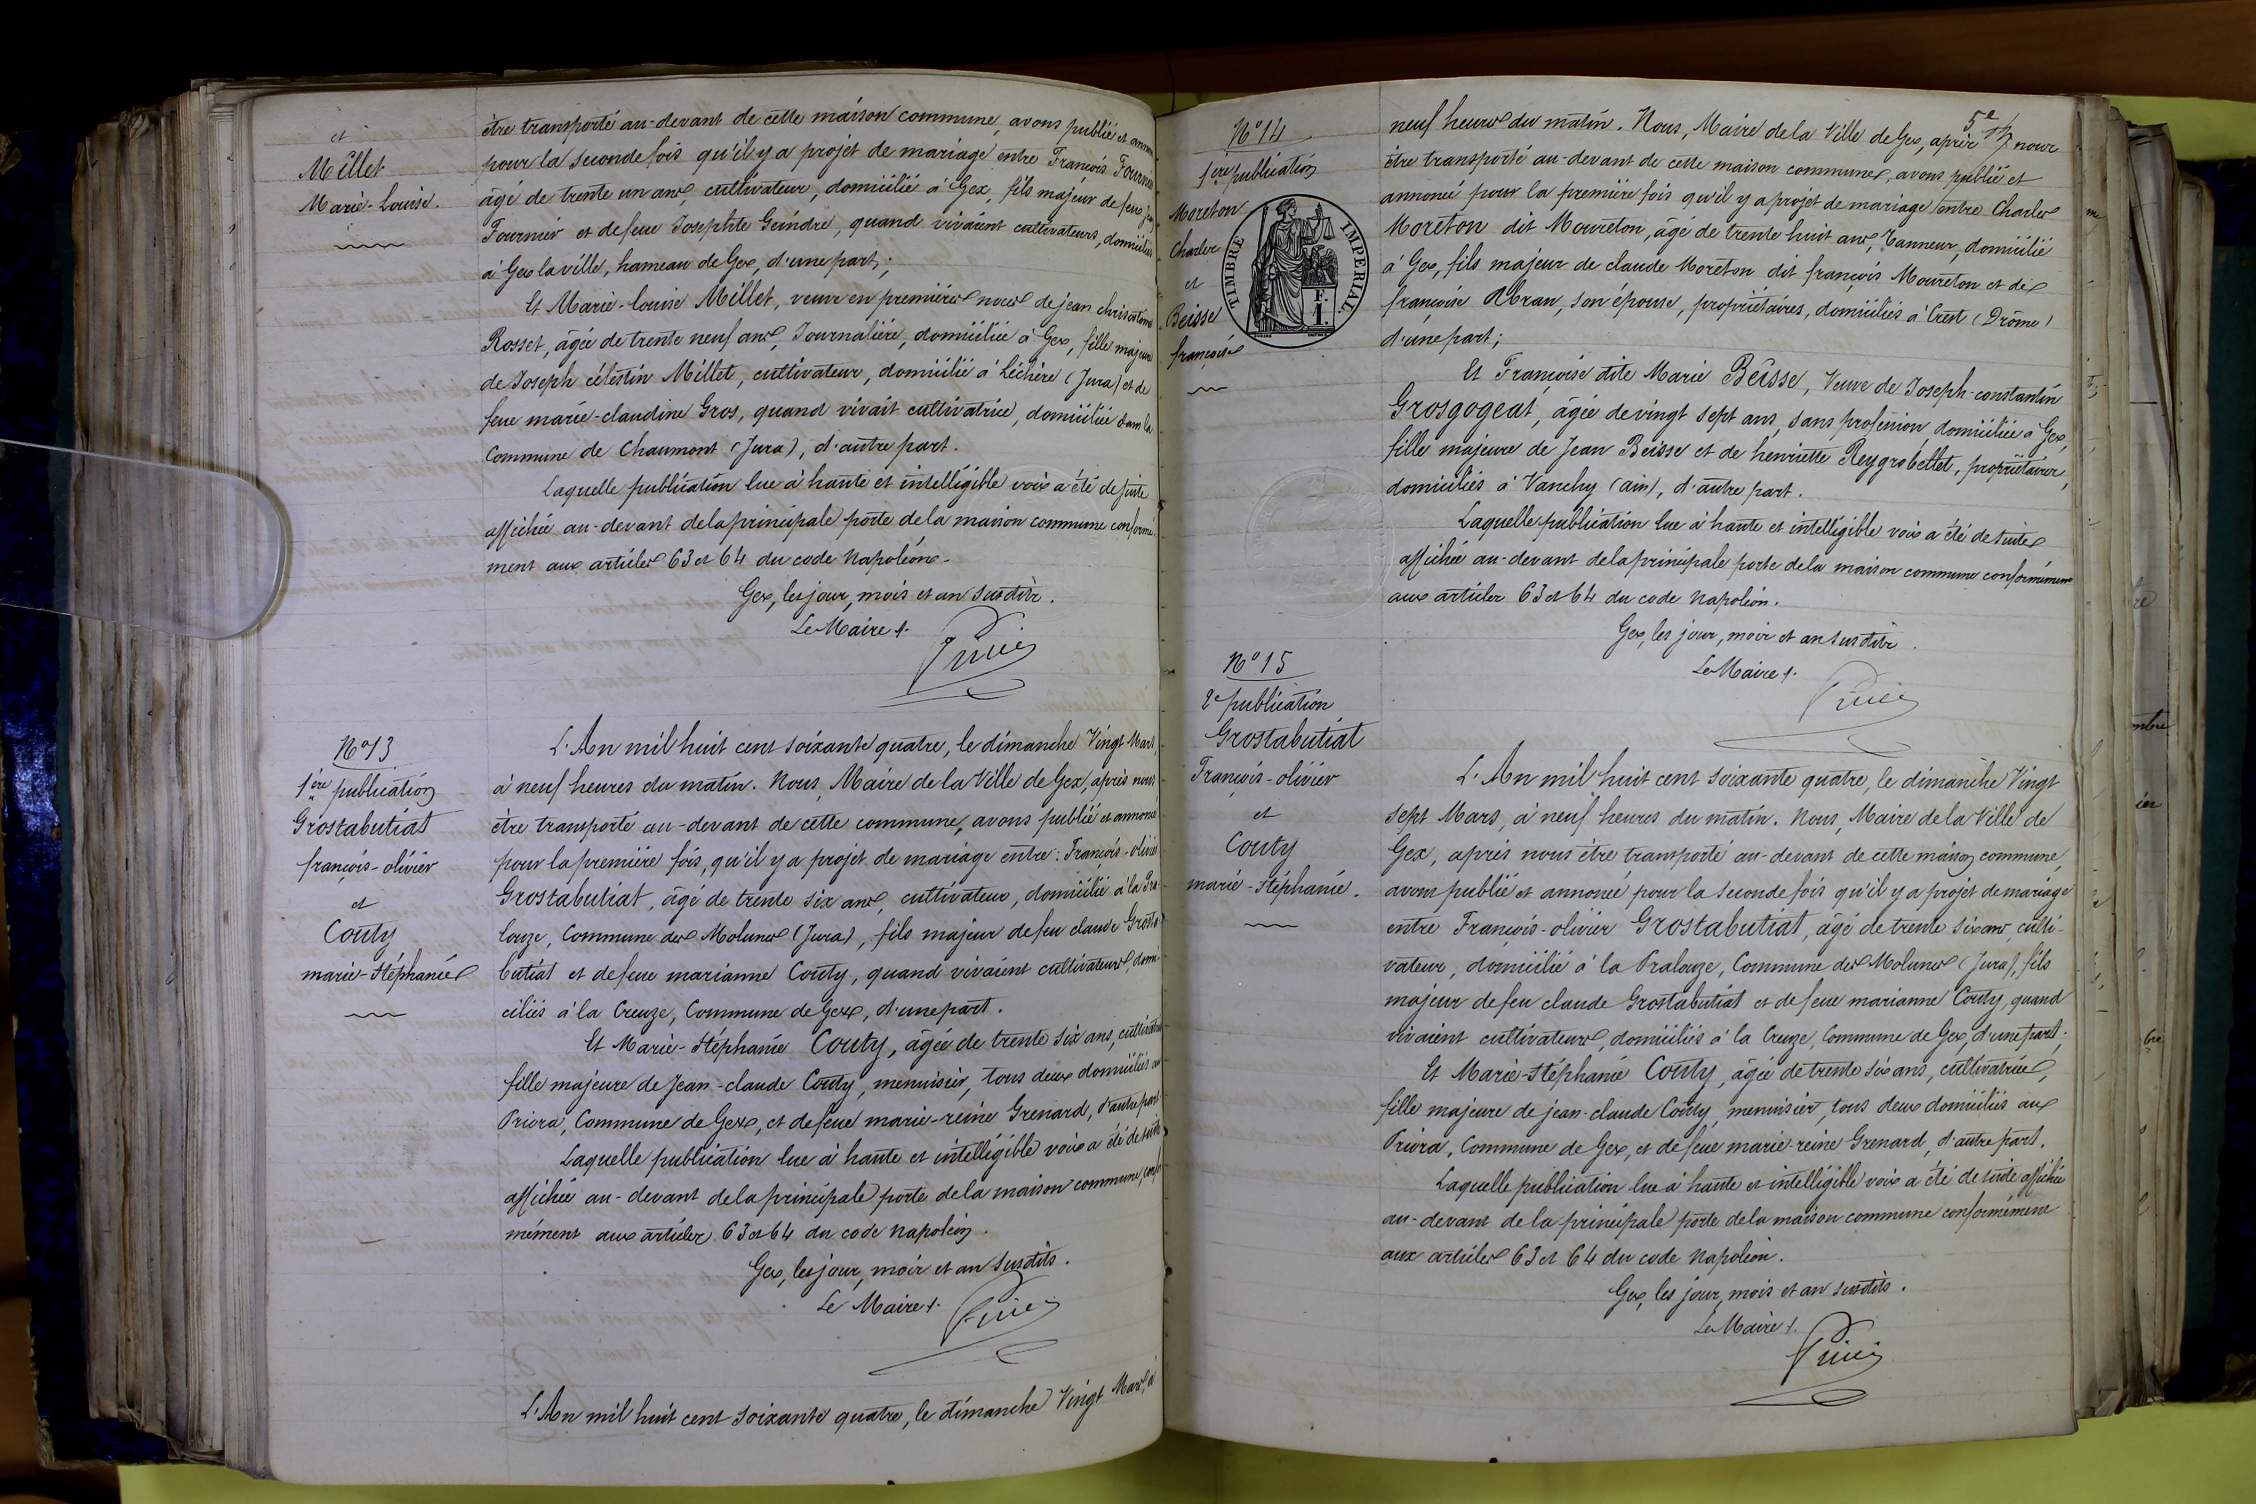 et
Millet
Marie-Louise.
être transporté au-devant de cette maison commune, avons publié et
pour la seconde fois qu'il y a projet de mariage entre François Fournier
âgé de trente un ans, cultivateur, domicilié à Gex, fils majeur de feu
Fournier et de feue Josephte Geindre, quand vivaient cultivateurs, domiciliés
à Gex la ville, hameau de Gex, d'une part;
Et Marie-Louise Millet, veuve en premières noces de jean chrisostome
Rosset, âgée de trente neuf ans, Journalière, domiciliée à Gex, fille majeure
de Joseph célestin Millet, cultivateur, domicilié à Léchère (Jura) et de
feue marie-claudine Gros, quand vivait cultivatrice, domiciliée dans la
Commune de Chaumont (Jura), d'autre part.
Laquelle publication lue à haute et intelligible voix a été de suite
affichée au-devant de la principale porte de la maison commune conformé-
ment aux articles 63 et 64 du code Napoléon.
Gex, les jour, mois et an susdits.
Le Maire
N° 13
1ère publication
Grostabutiat
françois-olivier
et
Couty
marie-Stéphanie
L'An mil huit cent soixante quatre, le dimanche Vingt Mars
à neuf heures du matin. Nous, Maire de la Ville de Gex, après nous
être transporté au-devant de cette commune, avons publié et annoncé
pour la première fois, qu'il y a projet de mariage entre: François-olivier
Grostabutiat, âgé de trente six ans, cultivateur, domicilié à la Pra-
louze, Commune des Molunes (Jura), fils majeur de feu claude Grosta-
butiat et de feue marianne Couty, quand vivaient cultivateurs, domi-
ciliés à la Creuze, Commune de Gex, d'une part.
Et Marie-Stéphanie Couty, âgée de trente six ans, cultivatrice
fille majeure de Jean-claude Couty, menuisier, tous deux domiciliés au
Priora, Commune de Gex, et de feue marie-reine Grenard, d'autre part
Laquelle publication lue à haute et intelligible voix a été de suite
affichée au-devant de la principale porte de la maison commune, confor-
mément aux articles 63 et 64 du code Napoléon.
Gex, les jour, mois et an susdits.
Le Maire
L'An mil huit cent soixante quatre, le dimanche Vingt Mars, à
5e
N° 14
1ère publication
Moreton
Charles
et
Beisse
françoise
TIMBRE IMPERIAL
neuf heures du matin. Nous, Maire de la Ville de Gex, après nous
être transporté au-devant de cette maison commune, avons publié et
annoncé pour la première fois qu'il y a projet de mariage entre Charles
Moreton dit Moureton, âgé de trente huit ans, Tanneur, domicilié
à Gex, fils majeur de claude Moreton dit françois Moureton et de
françoise Abran, son épouse, propriétaires, domiciliés à Crest (Drôme)
d'une part;
Et Françoise dite Marie Beisse, Veuve de Joseph-constantin
Grosgogeat, âgée de vingt sept ans, sans profession, domiciliée à Gex,
fille majeure de Jean Beisse et de henriette Reygrobellet, propriétaires,
domiciliés à Vanchy (ain), d'autre part.
Laquelle publication lue à haute et intelligible voix a été de suite
affichée au-devant de la principale porte de la maison commune conformément
aux articles 63 et 64 du code Napoléon.
Gex, les jour, mois et an susdits.
Le Maire
N° 15
2e publication
Grostabutiat
François-olivier
et
Couty
marie-Stéphanie.
L'An mil huit cent soixante quatre, le dimanche Vingt
sept Mars, à neuf heures du matin. Nous, Maire de la Ville de
Gex, après nous être transporté au-devant de cette maison commune,
avons publié et annoncé pour la seconde fois qu'il y a projet de mariage
entre François-olivier Grostabutiat, âgé de trente six ans, culti-
vateur, domicilié à la Pralouze, Commune des Molunes (Jura), fils
majeur de feu claude Grostabutiat et de feue marianne Couty, quand
vivaient cultivateurs, domiciliés à la Creuze, Commune de Gex, d'une part;
Et Marie-Stéphanie Couty, âgée de trente six ans, cultivatrice,
fille majeure de jean-claude Couty, menuisier, tous deux domiciliés aux
Priora, Commune de Gex, et de feue marie-reine Grenard, d'autre part.
Laquelle publication lue à haute et intelligible voix a été de suite affichée
au-devant de la principale porte de la maison commune conformément
aux articles 63 et 64 du code Napoléon.
Gex, les jour, mois et an susdits.
Le Maire